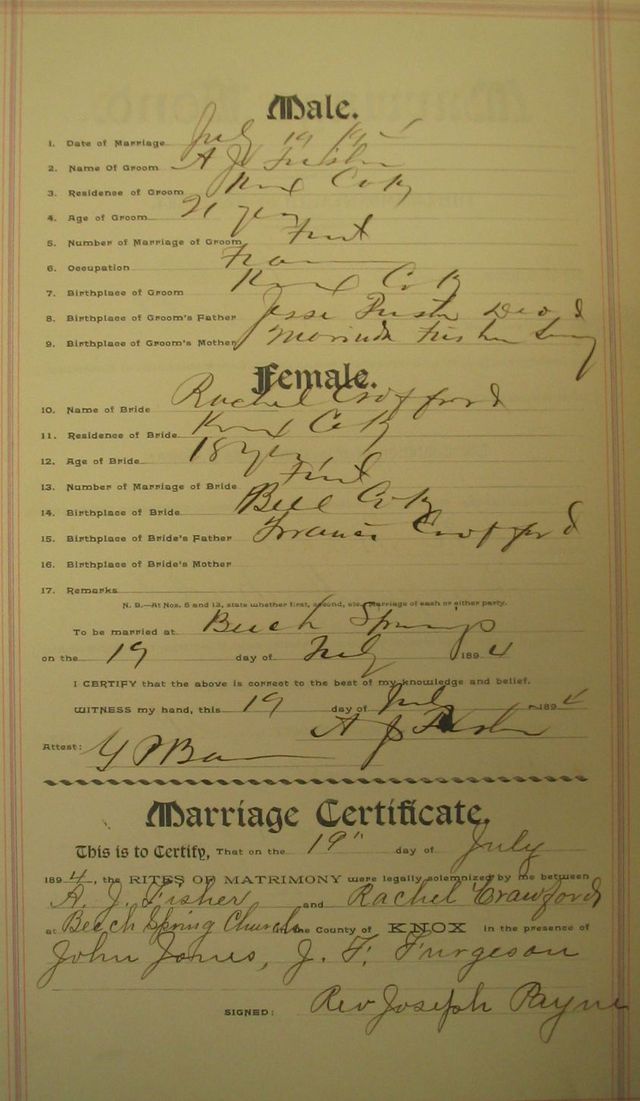 Male.
1. Date of Marriage July 19 189
2. Name Of Groom A J Fisher
3. Residence of Groom Knox Co Ky
4. Age of Groom 21 years
5. Number of Marriage of Groom First
6. Occupation
7. Birthplace of Groom Knox Co Ky
8. Birthplace of Groom's Father Jesse Fisher Dead
9. Birthplace of Groom's Mother Morinda Fisher Living
Female.
10. Name of Bride Rachel Crofford
11. Residence of Bride Knox Co Ky
12. Age of Bride 18 years
13. Number of Marriage of Bride First
14. Birthplace of Bride Bell Co Ky
15. Birthplace of Bride's Father Crofford
16. Birthplace of Bride's Mother
17. Remarks
N. B.—At Nos. 5 and 13, state whether first, second, etc., marriage of each or either party.
To be married at Beech Springs
on the 19 day of July 1894
I CERTIFY that the above is correct to the best of my knowledge and belief.
WITNESS my hand, this 19 day of July 1894
A J Fisher
Attest:
Marriage Certificate.
This is to Certify, That on the 19" day of July
1894, the RITES OF MATRIMONY were legally solemnized by me between
A. J. Fisher and Rachel Crawford
at Beech Spring Church in the County of KNOX in the presence of
John Jones, J. F. Furgeson
SIGNED: Rev Joseph Payne